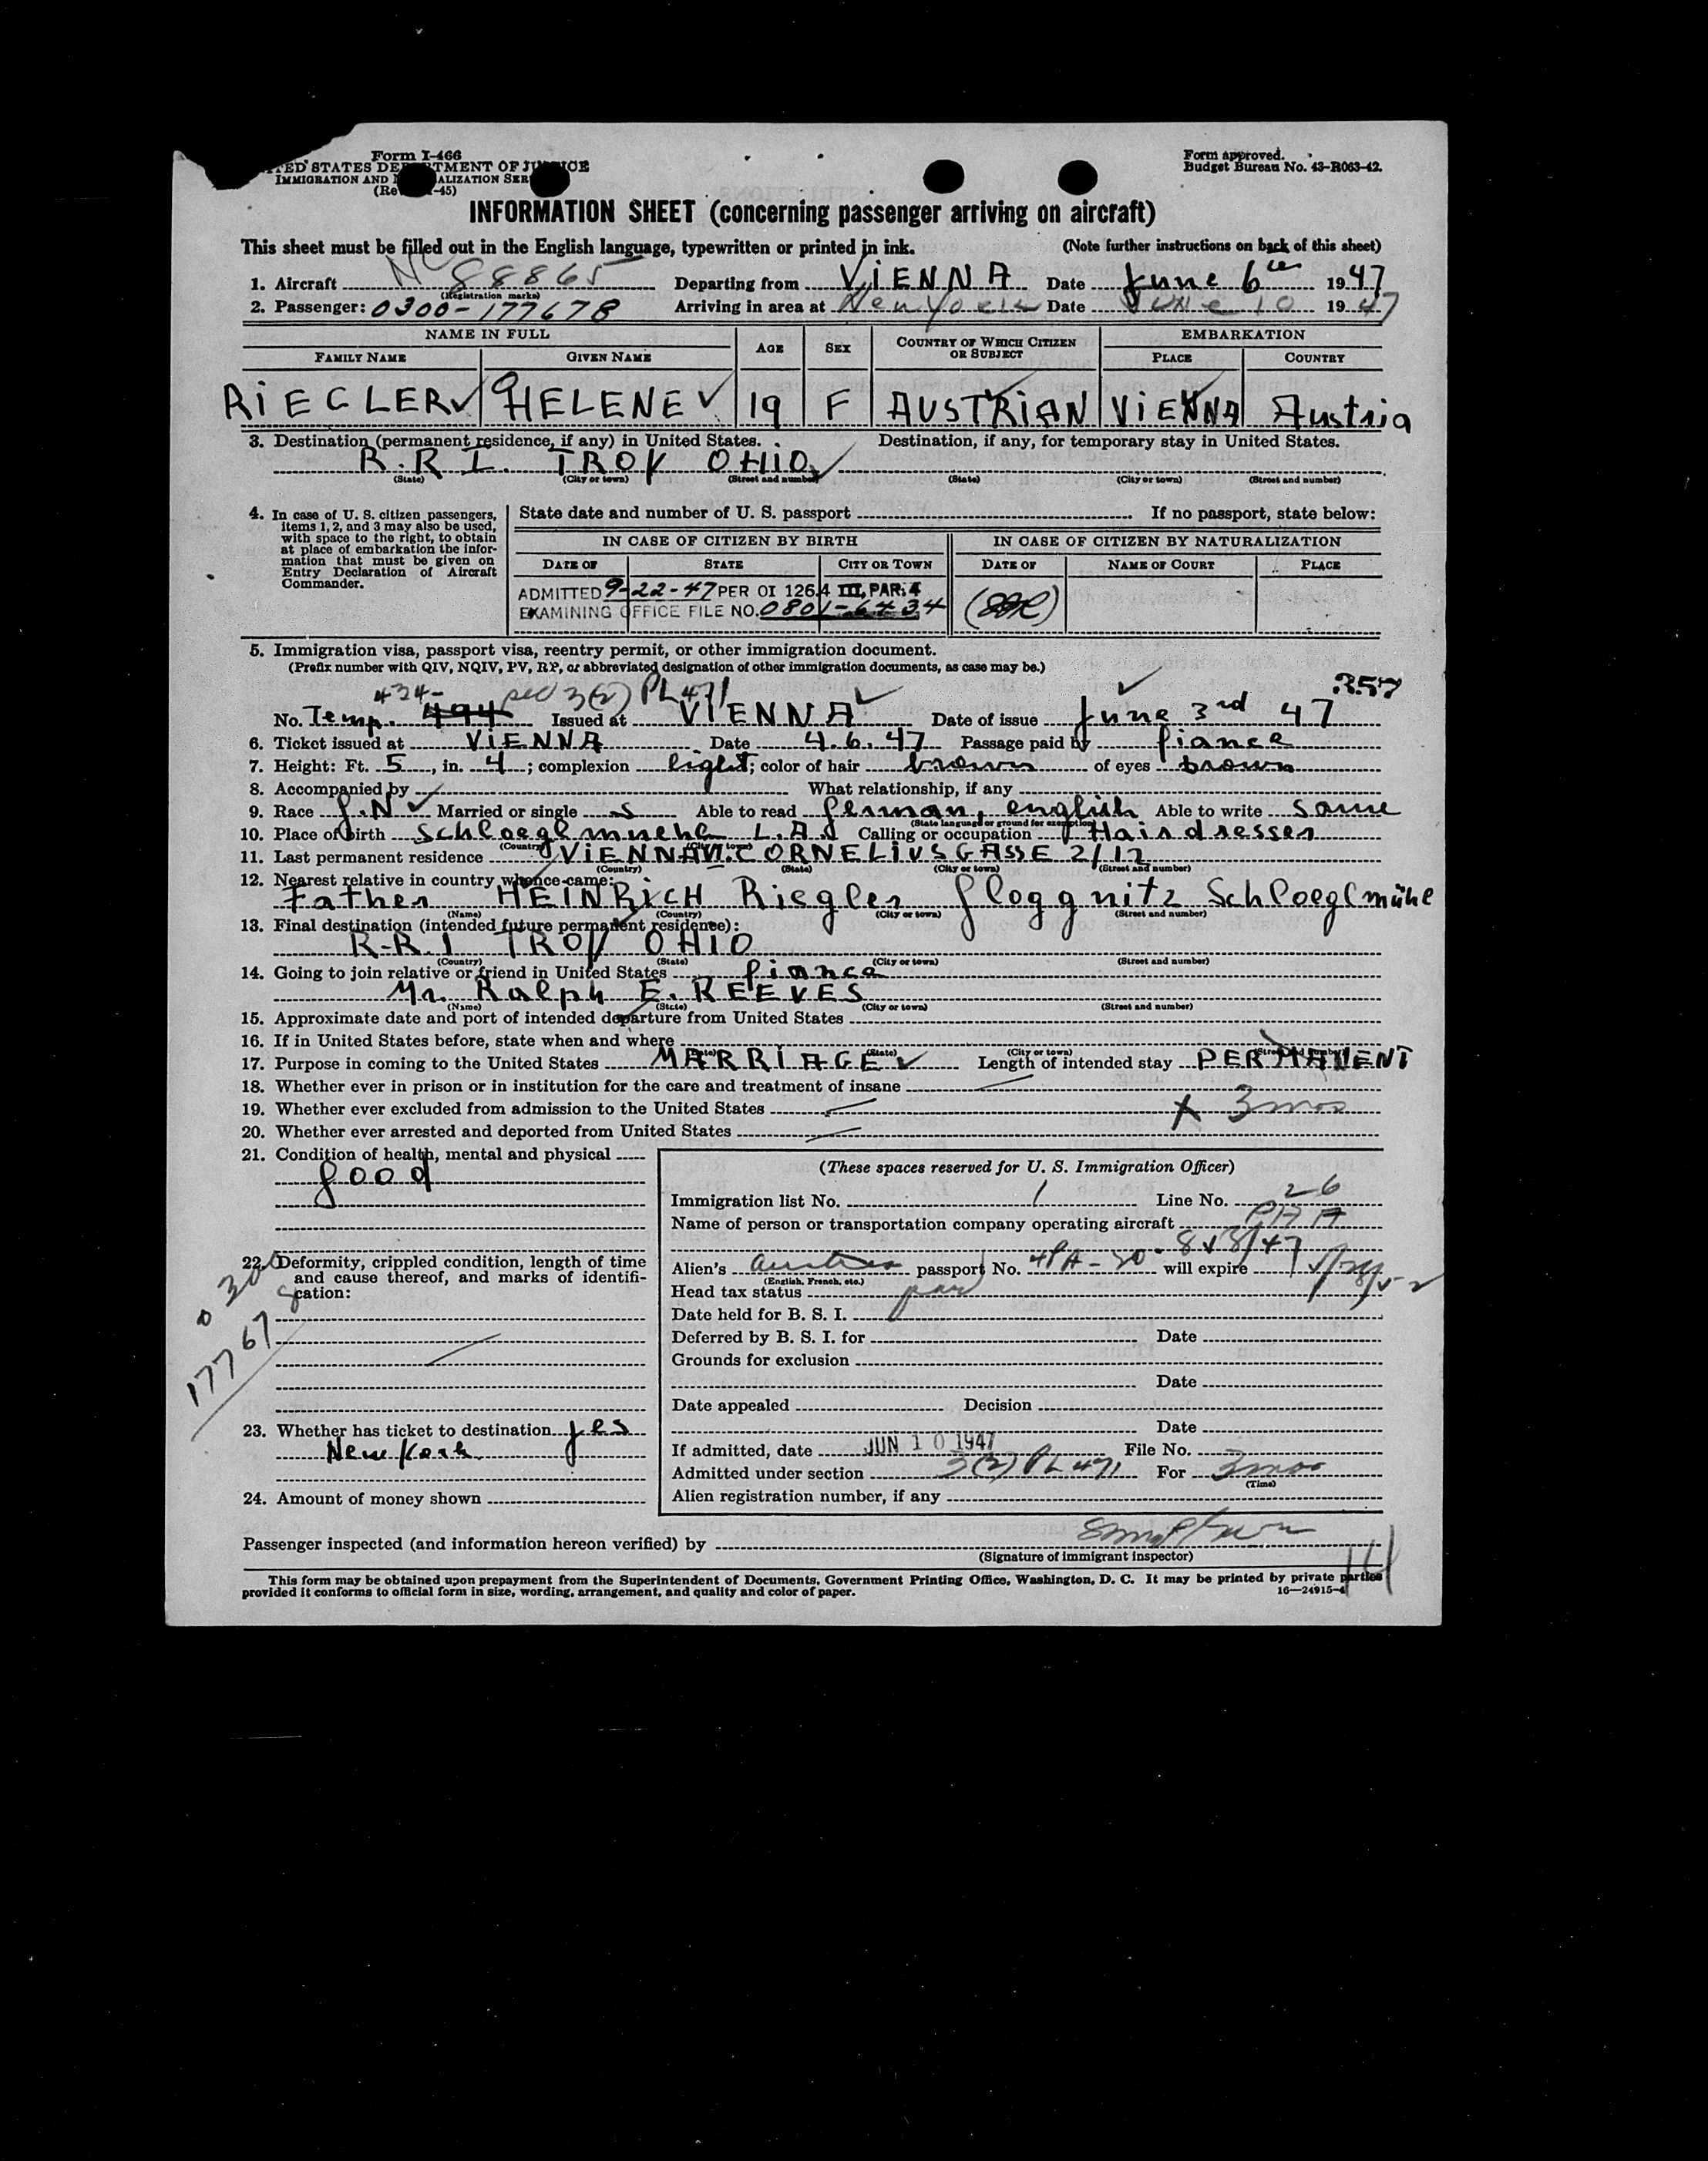 Form I-466
TED STATES DE TMENT OF JU ICE
IMMIGRATION AND ALIZATION SER
(Re -45)
Form approved.
Budget Bureau No. 43-R063-42.
INFORMATION SHEET (concerning passenger arriving on aircraft)
This sheet must be filled out in the English language, typewritten or printed in ink. (Note further instructions on back of this sheet)
1. Aircraft NC 88865 Departing from ViENNA Date June 6th 1947
(Registration marks)
2. Passenger: 0300-177678 Arriving in area at New York Date June 10 1947
NAME IN FULL AGE SEX COUNTRY OF WHICH CITIZEN OR SUBJECT EMBARKATION
FAMILY NAME GIVEN NAME PLACE COUNTRY
RiEGLER HELENE 19 F AUSTRiAN ViENNA Austria
3. Destination (permanent residence, if any) in United States. Destination, if any, for temporary stay in United States.
R.R I. TROY OHIO
(State) (City or town) (Street and number) (State) (City or town) (Street and number)
4. In case of U. S. citizen passengers, items 1, 2, and 3 may also be used, with space to the right, to obtain at place of embarkation the information that must be given on Entry Declaration of Aircraft Commander.
State date and number of U. S. passport If no passport, state below:
IN CASE OF CITIZEN BY BIRTH IN CASE OF CITIZEN BY NATURALIZATION
DATE OF STATE CITY OR TOWN DATE OF NAME OF COURT PLACE
ADMITTED 9-22-47 PER OI 126.4 III, PAR. 4
EXAMINING OFFICE FILE NO. 0801-6434
5. Immigration visa, passport visa, reentry permit, or other immigration document.
(Prefix number with QIV, NQIV, PV, RP, or abbreviated designation of other immigration documents, as case may be.)
434- sec 3(2) PL 471 357
No. Temp. 494 Issued at ViENNA Date of issue June 3rd 47
6. Ticket issued at ViENNA Date 4.6.47 Passage paid by fiance
7. Height: Ft. 5, in. 4; complexion light; color of hair brown of eyes brown
8. Accompanied by What relationship, if any
9. Race Married or single S Able to read german, english Able to write same
(State language or ground for exemption)
10. Place of birth Schloeglmuehl Calling or occupation Hairdresser
(Country) (City or town)
11. Last permanent residence ViENNA VI. CORNELIUSGASSE 2/12
(Country) (State) (City or town) (Street and number)
12. Nearest relative in country whence came:
Father HEINRiCH Riegler gloggnitz Schloeglmühl
(Name) (Country) (City or town) (Street and number)
13. Final destination (intended future permanent residence):
R.R.I TROY OHIO
(Country) (State) (City or town) (Street and number)
14. Going to join relative or friend in United States fiance
Mr. Ralph E. REEVES
(Name) (State) (City or town) (Street and number)
15. Approximate date and port of intended departure from United States
16. If in United States before, state when and where
(State) (City or town) (Street and number)
17. Purpose in coming to the United States MARRiAGE Length of intended stay PERMANENT
18. Whether ever in prison or in institution for the care and treatment of insane
19. Whether ever excluded from admission to the United States X 3 mos
20. Whether ever arrested and deported from United States
21. Condition of health, mental and physical
good
22. Deformity, crippled condition, length of time and cause thereof, and marks of identification:
0300
177678
23. Whether has ticket to destination yes
New York
24. Amount of money shown
(These spaces reserved for U. S. Immigration Officer)
Immigration list No. 1 Line No. 26
Name of person or transportation company operating aircraft
Alien's Austria passport No. will expire
(English, French, etc.)
Head tax status
Date held for B. S. I.
Deferred by B. S. I. for Date
Grounds for exclusion
Date
Date appealed Decision
Date
If admitted, date JUN 10 1947 File No.
Admitted under section 3(2) PL 471 For 3 mos
(Time)
Alien registration number, if any
Passenger inspected (and information hereon verified) by
(Signature of immigrant inspector)
This form may be obtained upon prepayment from the Superintendent of Documents, Government Printing Office, Washington, D. C. It may be printed by private parties
provided it conforms to official form in size, wording, arrangement, and quality and color of paper. 16—24915-4